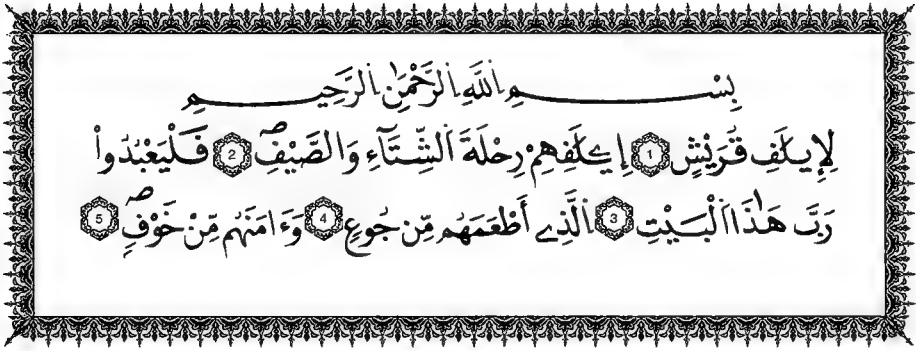 بِسْمِ اِ۬للَّهِ اِ۬لرَّحْمَٰنِ اِ۬لرَّحِيمِ
لِإِيلَٰفِ قُرَيْشٍ 1 إِۦلَٰفِهِمْ رِحْلَةَ اَ۬لشِّتَآءِ وَالصَّيْفِۖ 2 فَلْيَعْبُدُواْ
رَبَّ هَٰذَا اَ۬لْبَيْتِ 3 اِ۬لَّذِے أَطْعَمَهُم مِّن جُوعٍ 4 وَءَامَنَهُم مِّنْ خَوْفٍۖ 5